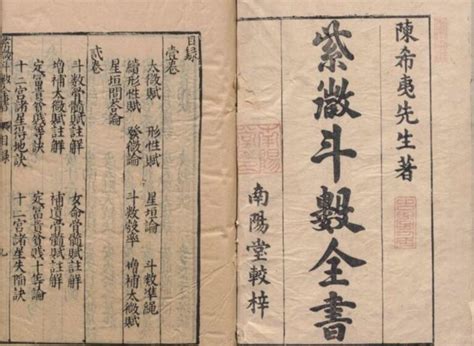 陳希夷先生著
紫微斗數全書
南陽堂較梓
目錄
壹卷
太微賦 形性賦 星垣論 斗數準繩
續形性賦 發微論 斗數發率 增補太微賦
星垣問答論
貳卷
斗數骨髓賦註解 女命骨髓賦註解
增補太微賦註解 補遺骨髓賦註解
定富貴貧賤等訣 定富貴貧賤十等論
十二宮諸星得地訣 十二宮諸星失陷訣
目錄